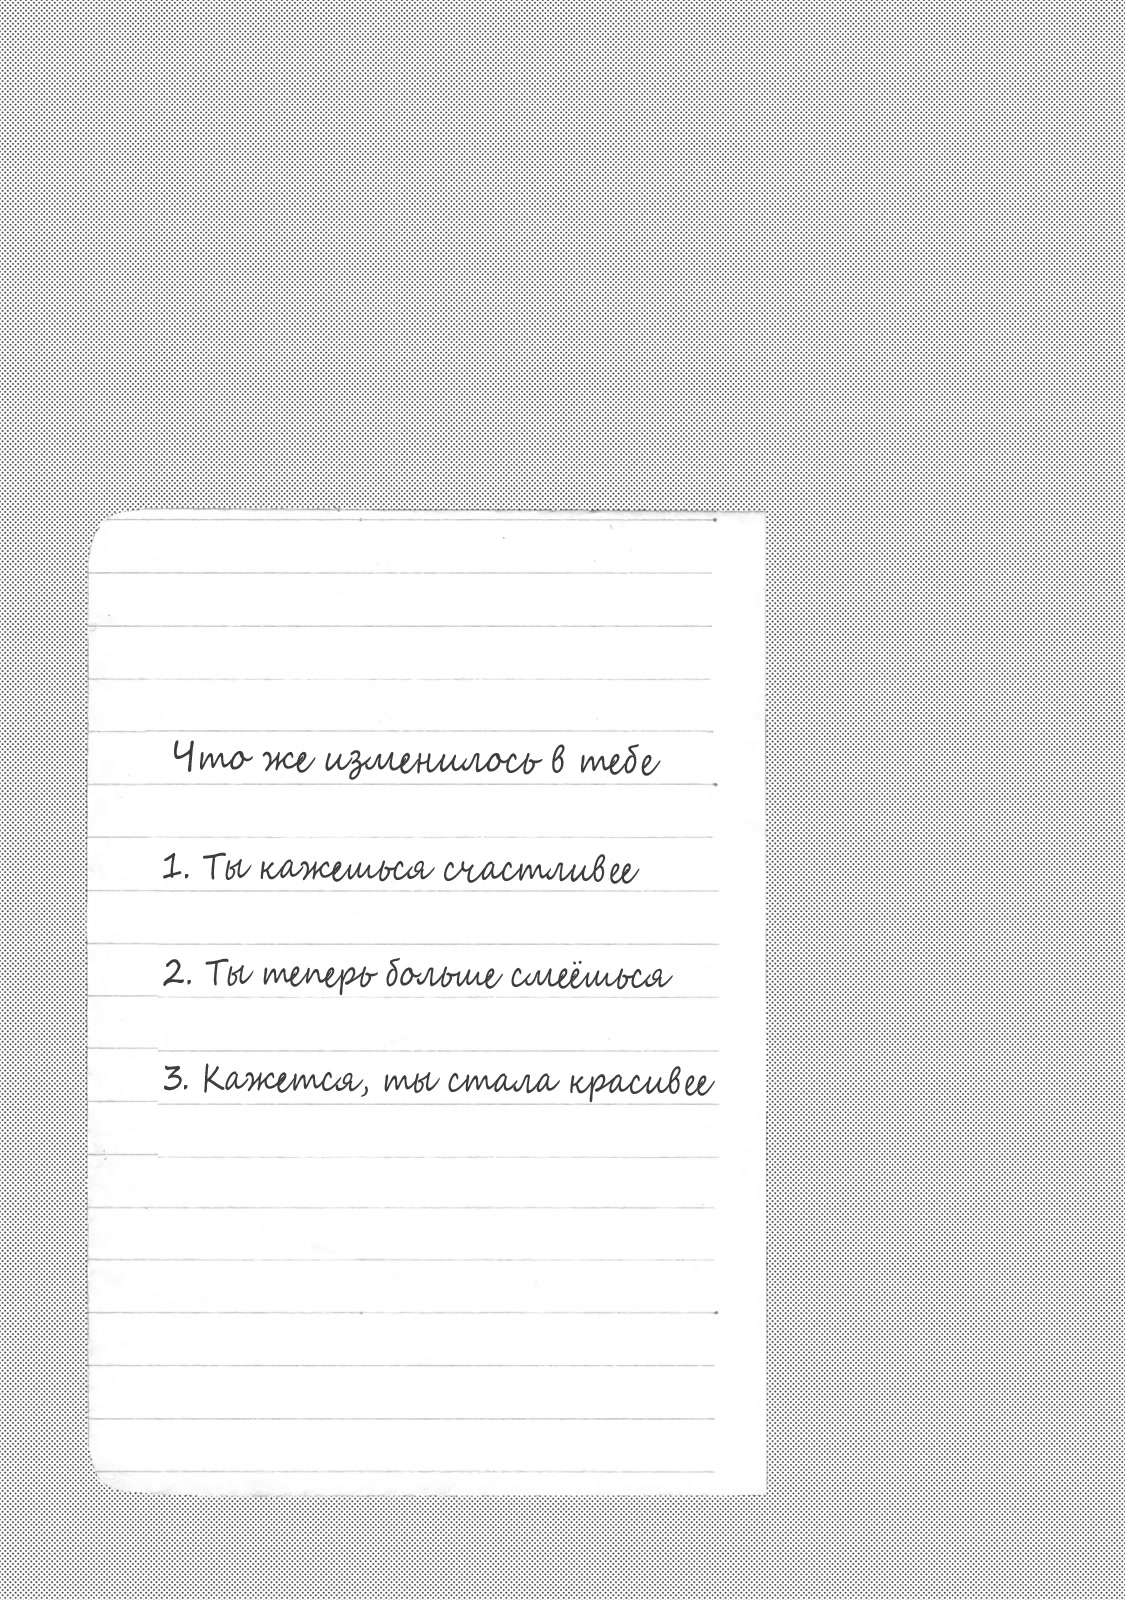 Что же изменилось в тебе
1. Ты кажешься счастливее
2. Ты теперь больше смеёшься
3. Кажется, ты стала красивее